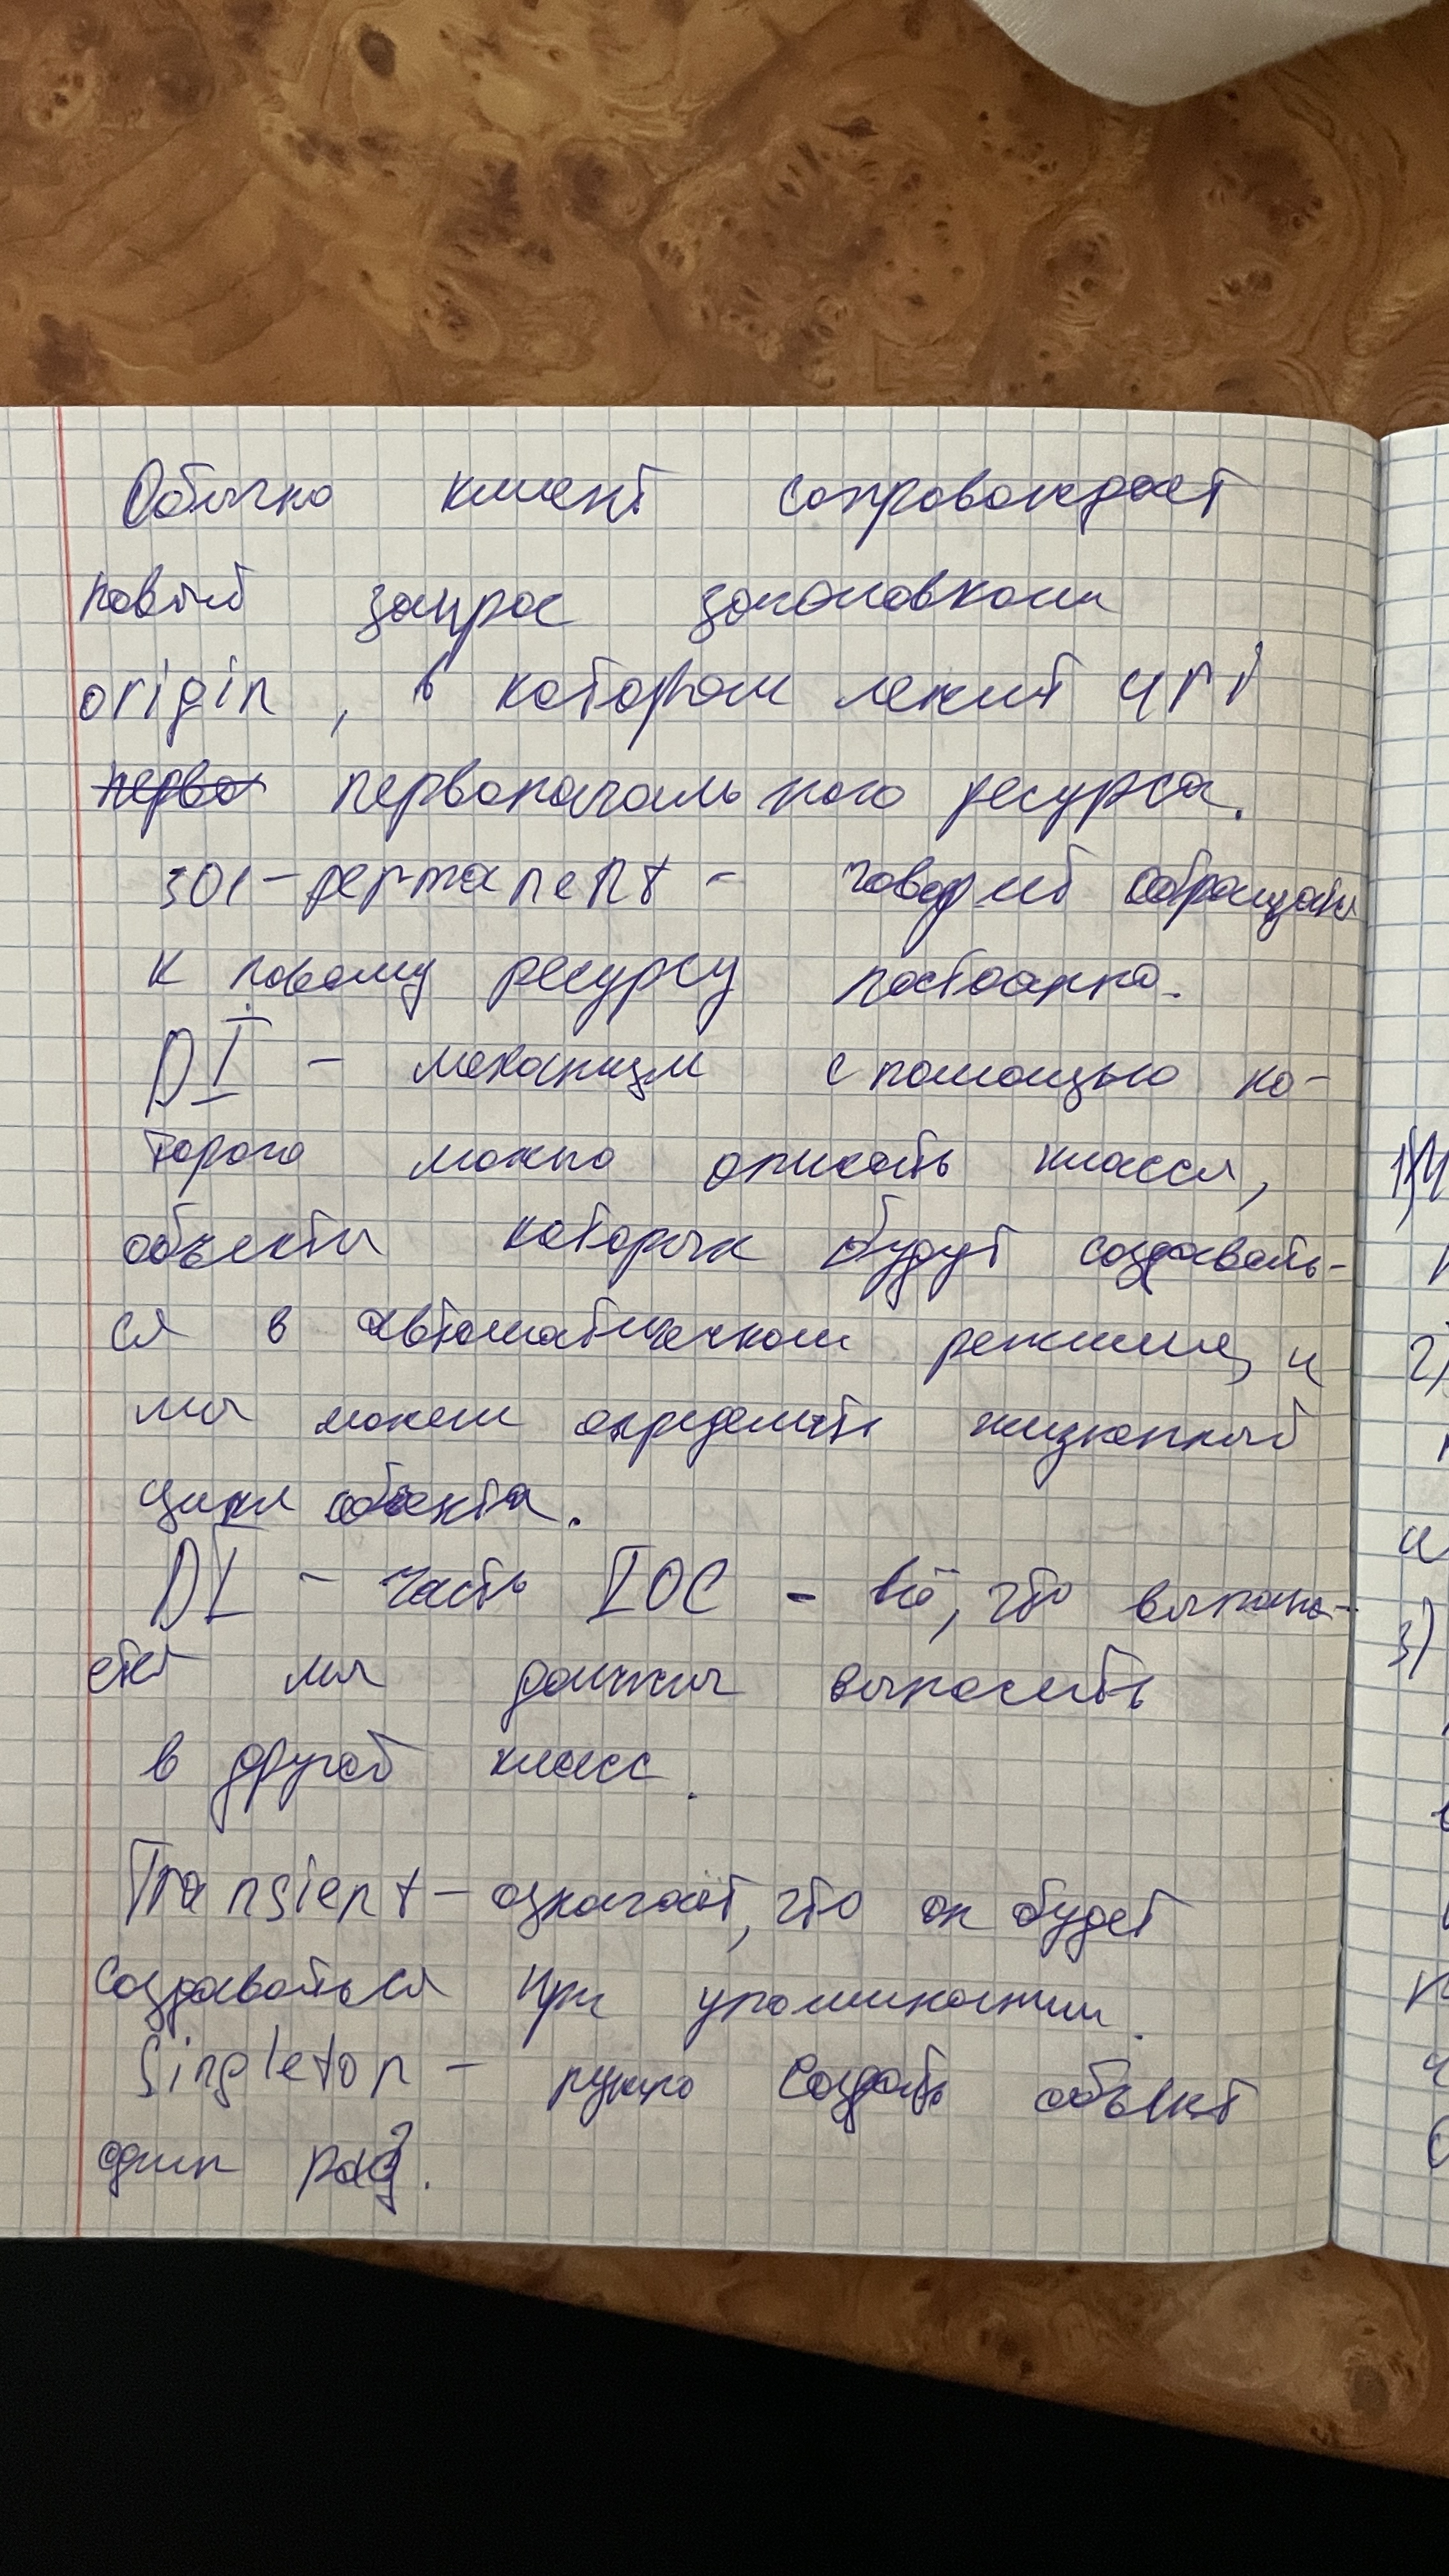 Обычно клиент сопровождает
новый запрос заголовком
origin, в котором лежит uri
перво первоначального ресурса.
301-permanent - говорит обращаться
к новому ресурсу постоянно.
DI - механизм с помощью ко-
торого можно описать классы,
объекты которых будут создавать-
ся в автоматическом режиме, и
мы можем определить жизненный
цикл объекта.
DI - часть IOC - всё, что
мы должны выносить
в другой класс.
Transient - означает, что он будет
создаваться при упоминании.
Singleton - нужно создать объект
один раз.
1)
2)
3)